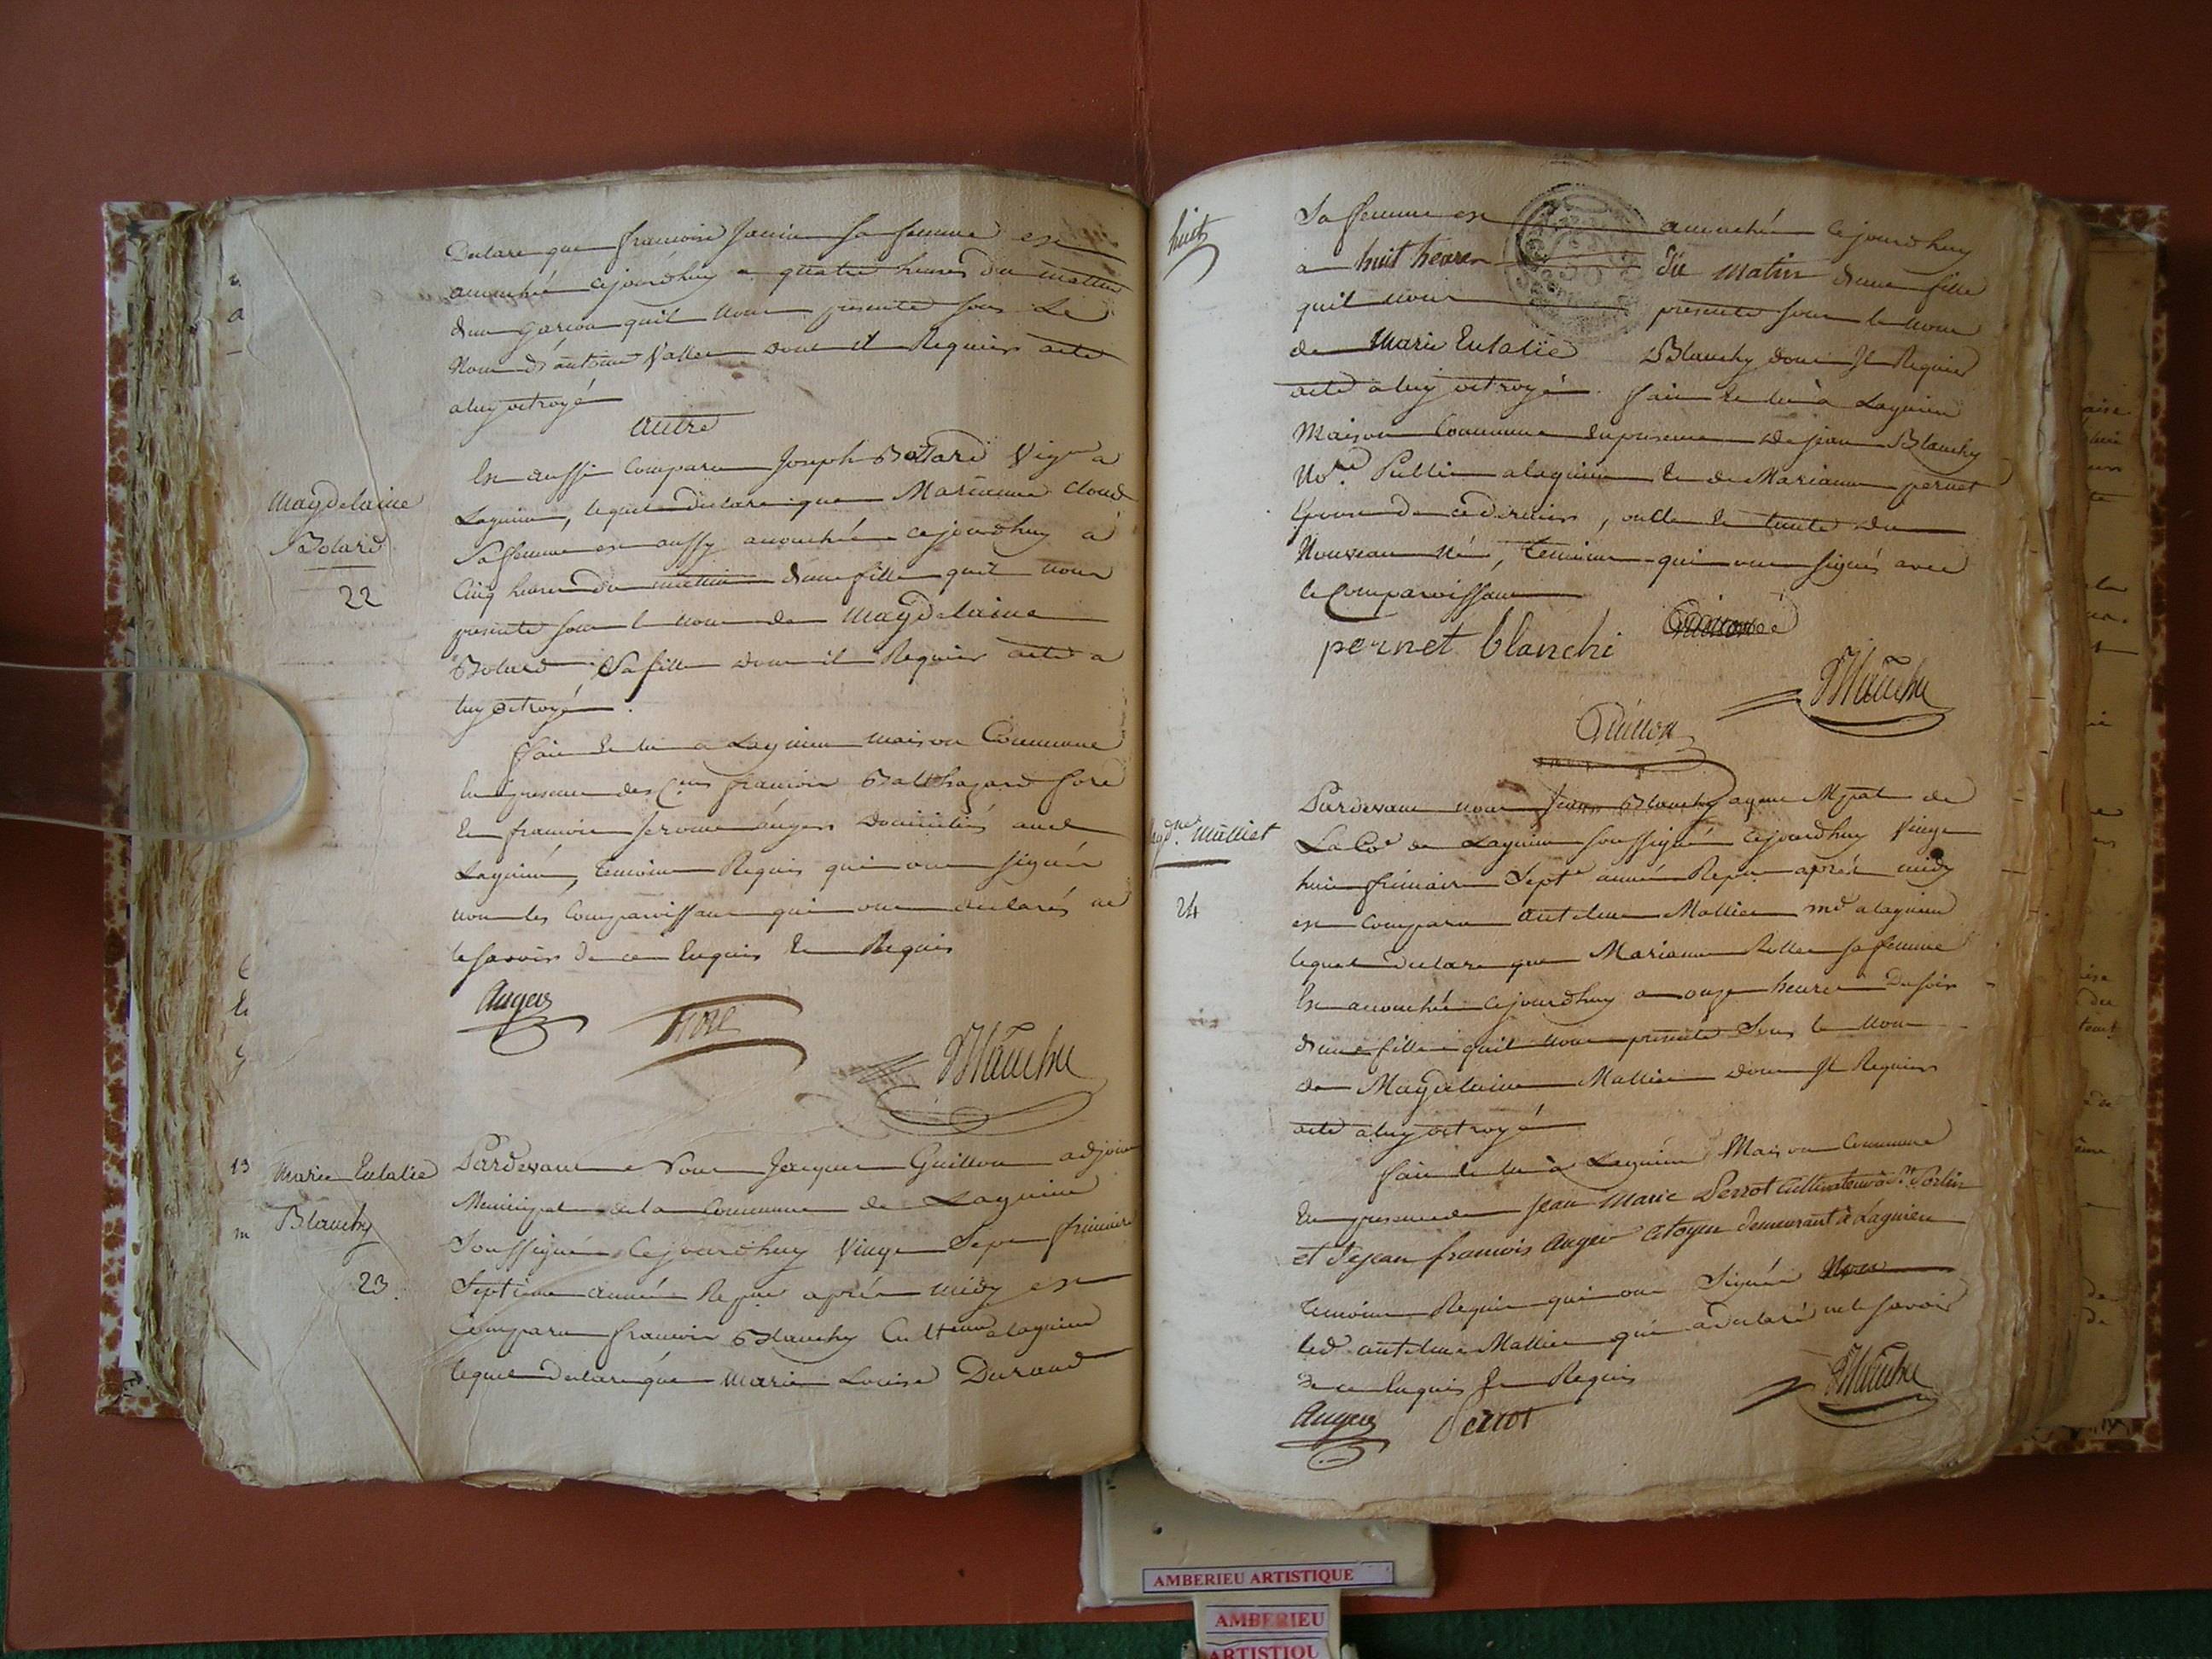 Declare que francoise Janin sa femme est
accouchée cejourdhuy a quatre heures du mattin
dun garcon quil nous presente sous Le
Nom d'antoine Vallet dont il Requier acte
a luy octroyé
autre
Est aussi Comparu Joseph Bollard Vign a
Lagnieu, lequel declare que Marianne Cloud
Sa femme est aussy accouchée cejourdhuy à
Cinq heures du mattin dune fille quil nous
presente sous le nom de Magdelaine
Bolard Sa fille dont il Requier acte a
luy octroyé.
Magdelaine
Bolard
22
fait et lu a Lagnieu maison Commune
En presence des C.ens francois Balthazard fore
et francois jerome augers domiciliés aud
Lagnieu, temoins Requis qui ont signés
non les Comparoissant qui ont declarés ne
le savoir de ce Enquis et Requis
Augers
Fore
Blanchy
Marie Eulalie
Blanchy
23.
Pardevant Nous Jacques Guillon adjoint
Municipal de la Commune de Lagnieu
Soussigné Cejourdhuy Vingt Sept frimaire
Septieme année Repue après midy est
Comparu francois Blanchy Cult eur a lagnieu
lequel declare que Marie Louise Durand
huit
Sa femme est accouchée cejourdhuy
a huit heures du matin dune fille
quil nous presente sous le nom
de Marie Eulalie Blanchy dont Il Requier
acte a luy octroyé. fait et lu à Lagnieu
Maison Commune En presence de jean Blanchy
No.re Public a lagnieu et de Marianne pernet
Epouse de ce dernier, oncle et tante du
Nouveau Né, temoins qui ont signés avec
le Comparoissant
pernet blanchi
Blanchy
Guillon
Magd.ne Malliet
24
Pardevant nous Jean Blanchy agent Mpal de
La Coe de Lagnieu soussigné Cejourdhuy Vingt
huit frimaire Septe année Repue après midy
est Comparu antelme Mallier md a lagnieu
lequel declare que Marianne Rollet sa femme
Est accouchée cejourdhuy a onze heures du soir
dune fille quil nous presente Sous le Nom
de Magdelaine Mallier dont Il Requier
acte a luy octroyé
fait et lu à Lagnieu Maison Commune
En presence de jean Marie Perrot Cultivateur à St. Sorlin
et de jean francois Auger Citoyen demeurant à Lagnieu
temoins Requis qui ont Signés Non
led antelme Mallier qui a declaré ne le savoir
de ce Enquis et Requis
Augers
Perrot
Blanchy
AMBERIEU ARTISTIQUE
AMBERIEU